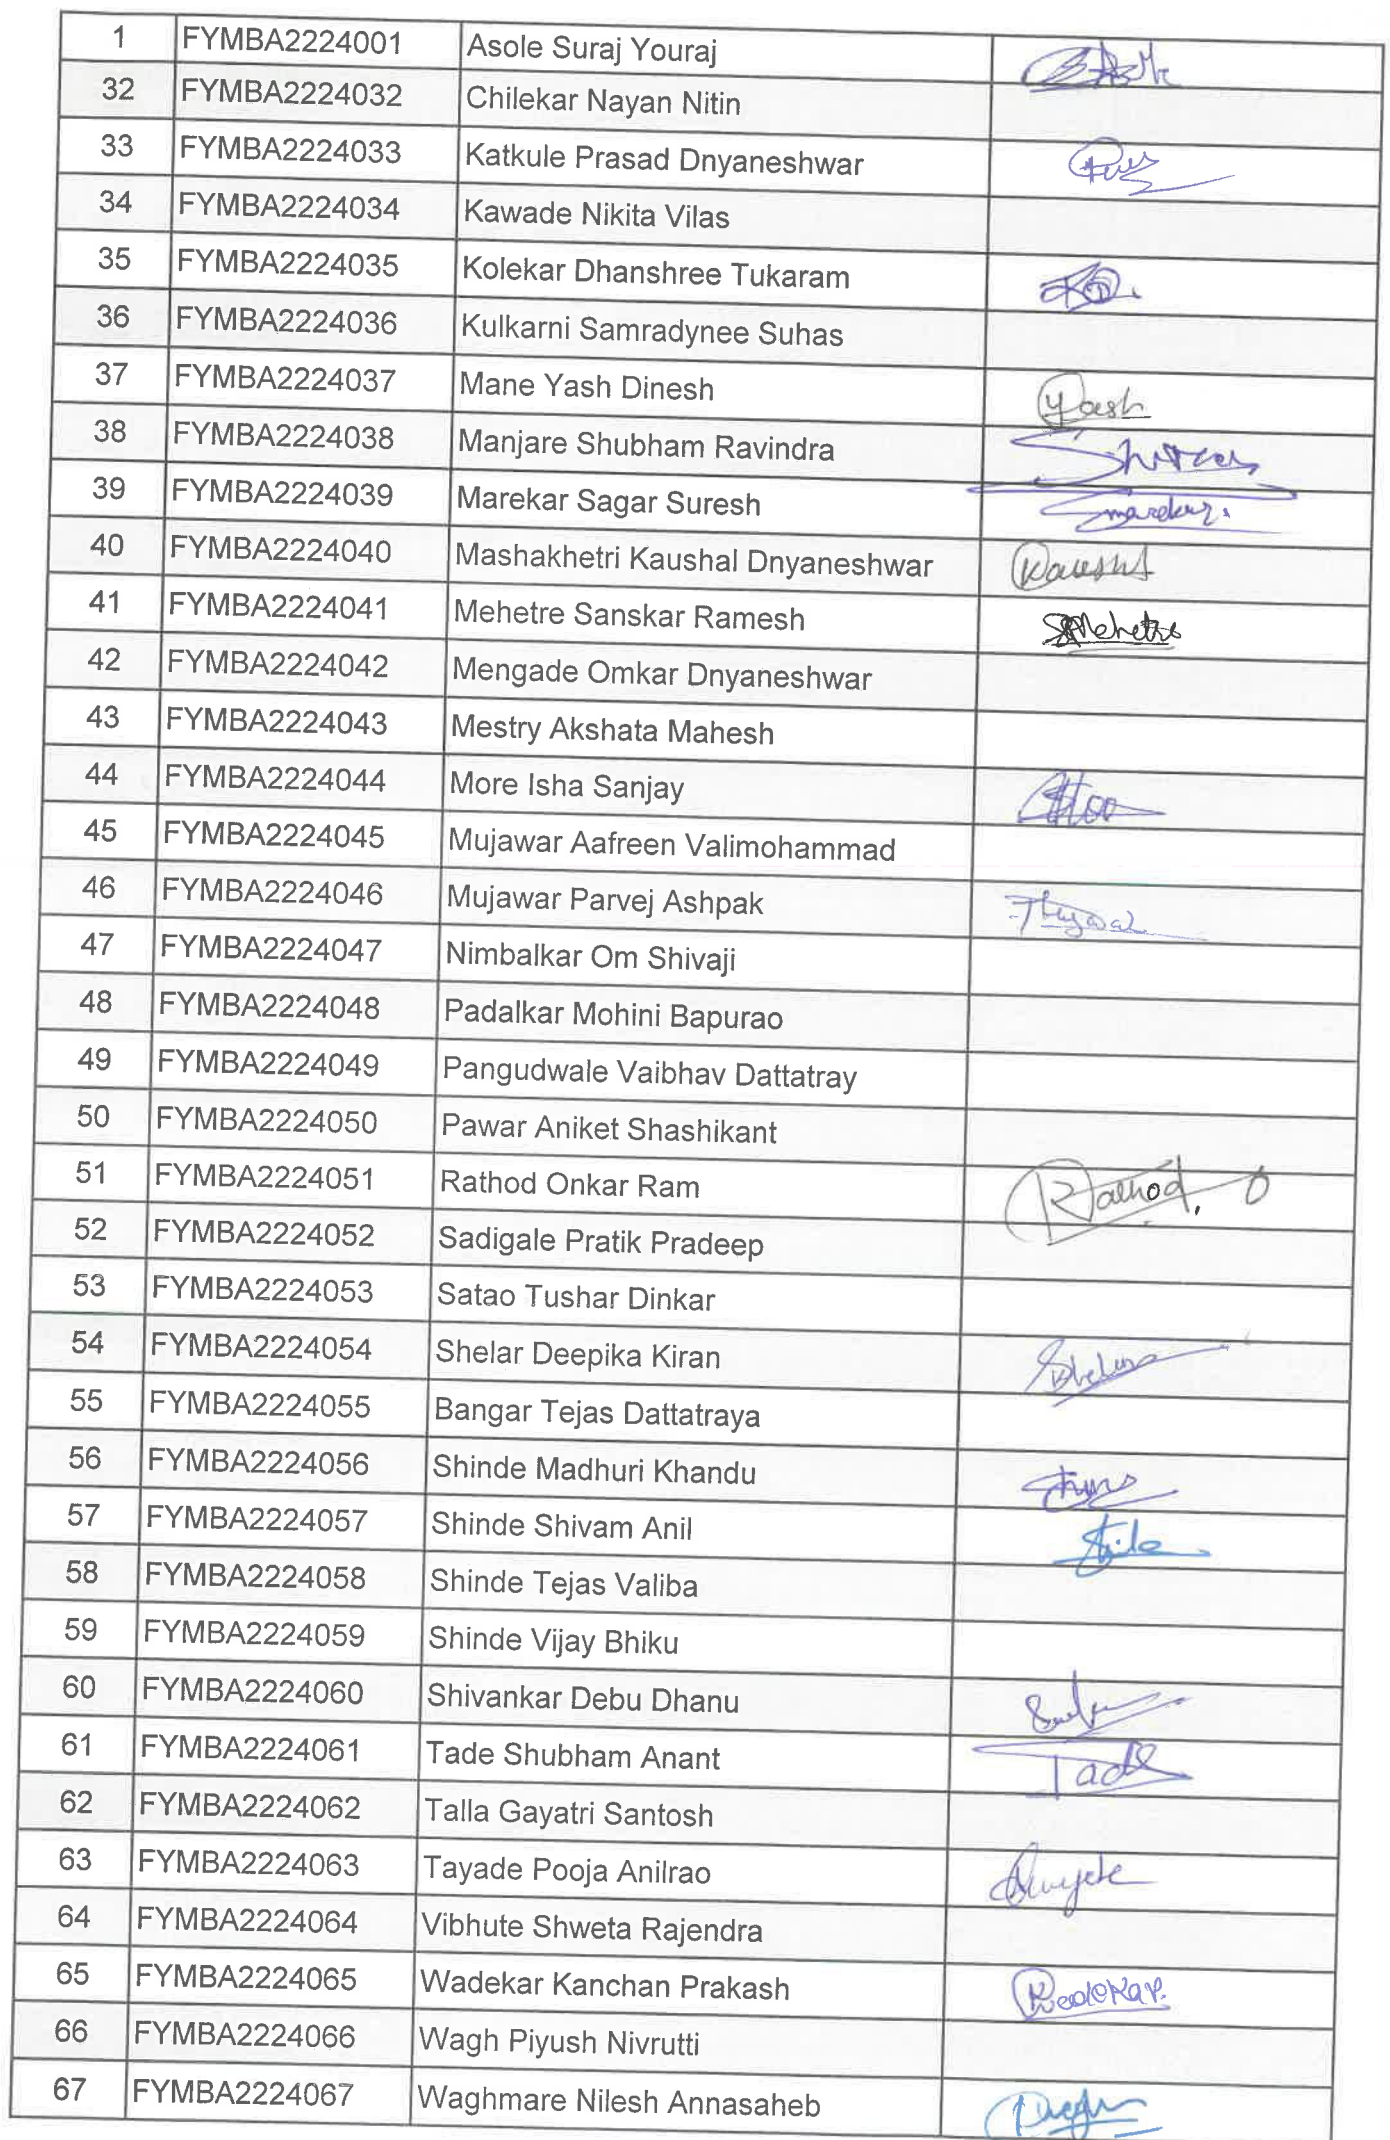 1 FYMBA2224001 Asole Suraj Youraj
32 FYMBA2224032 Chilekar Nayan Nitin
33 FYMBA2224033 Katkule Prasad Dnyaneshwar
34 FYMBA2224034 Kawade Nikita Vilas
35 FYMBA2224035 Kolekar Dhanshree Tukaram
36 FYMBA2224036 Kulkarni Samradynee Suhas
37 FYMBA2224037 Mane Yash Dinesh Yash
38 FYMBA2224038 Manjare Shubham Ravindra
39 FYMBA2224039 Marekar Sagar Suresh Smarekar.
40 FYMBA2224040 Mashakhetri Kaushal Dnyaneshwar
41 FYMBA2224041 Mehetre Sanskar Ramesh SRMehetre
42 FYMBA2224042 Mengade Omkar Dnyaneshwar
43 FYMBA2224043 Mestry Akshata Mahesh
44 FYMBA2224044 More Isha Sanjay
45 FYMBA2224045 Mujawar Aafreen Valimohammad
46 FYMBA2224046 Mujawar Parvej Ashpak
47 FYMBA2224047 Nimbalkar Om Shivaji
48 FYMBA2224048 Padalkar Mohini Bapurao
49 FYMBA2224049 Pangudwale Vaibhav Dattatray
50 FYMBA2224050 Pawar Aniket Shashikant
51 FYMBA2224051 Rathod Onkar Ram Rathod. O
52 FYMBA2224052 Sadigale Pratik Pradeep
53 FYMBA2224053 Satao Tushar Dinkar
54 FYMBA2224054 Shelar Deepika Kiran
55 FYMBA2224055 Bangar Tejas Dattatraya
56 FYMBA2224056 Shinde Madhuri Khandu
57 FYMBA2224057 Shinde Shivam Anil
58 FYMBA2224058 Shinde Tejas Valiba
59 FYMBA2224059 Shinde Vijay Bhiku
60 FYMBA2224060 Shivankar Debu Dhanu
61 FYMBA2224061 Tade Shubham Anant Tade
62 FYMBA2224062 Talla Gayatri Santosh
63 FYMBA2224063 Tayade Pooja Anilrao
64 FYMBA2224064 Vibhute Shweta Rajendra
65 FYMBA2224065 Wadekar Kanchan Prakash
66 FYMBA2224066 Wagh Piyush Nivrutti
67 FYMBA2224067 Waghmare Nilesh Annasaheb